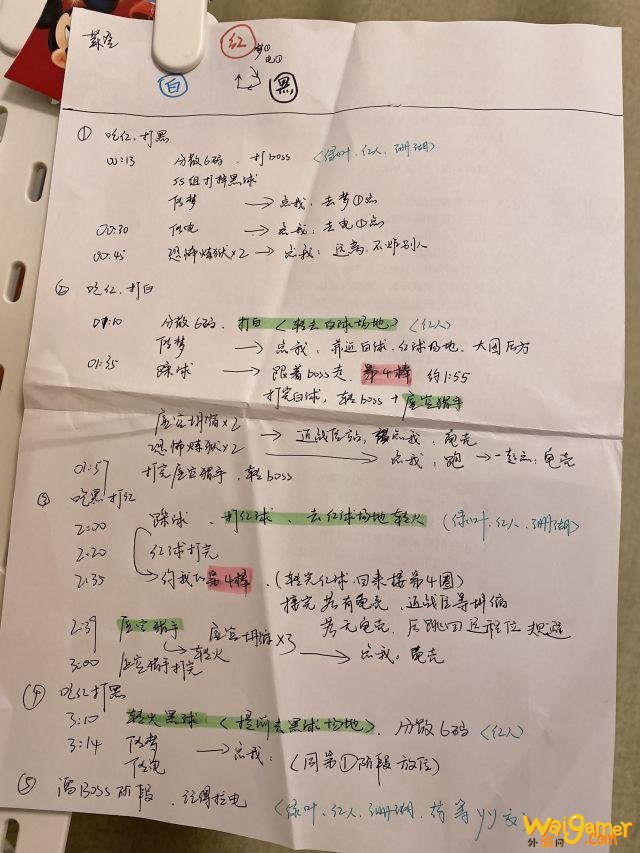 红
梦①
电①
白 黑
① 吃红、打黑
00:13 分散6码、打boss (绿叶、红人、珊瑚)
SS组打掉黑球
传梦 → 点我:去梦①点
00:30 传电 → 点我:去电①点
00:45 恐怖炼狱×2 → 点我:远离、不炸别人
② 吃红、打白
01:10 分散6码、打白(转去白球场地) (红人)
传梦 → 点我:靠近白球、红球场地、大团后方
01:35 踩球 → 跟着boss走、第4棒 约1:55
打完白球,转boss+虚空猎手
虚空坍缩×2 → 近战位站,点我:龟壳
恐怖炼狱×2 → 点我:跑 → 一起点:龟壳
01:57 打完虚空猎手,转boss
③ 吃黑打红
2:00 踩球、打红球、去红球场地转火 (绿叶、红人、珊瑚)
2:20 红球打完
2:35 第4棒、(转完红球,回来接第4圈)
接完若有龟壳、近战位等坍缩
2:39 虚空猎手 虚空坍缩×3 若无龟壳,后跳回远程位
转火 → 点我:龟壳
3:00 虚空猎手打完
④ 吃红打黑
3:10 转火黑球(提前去黑球场地)、分散6码 (红人)
3:14 传梦 → 点我: (同第①阶段放位)
传电
⑤ 阶段、记得拉电 (绿叶、红人、珊瑚、药等
Waigamer
外盒网 .com